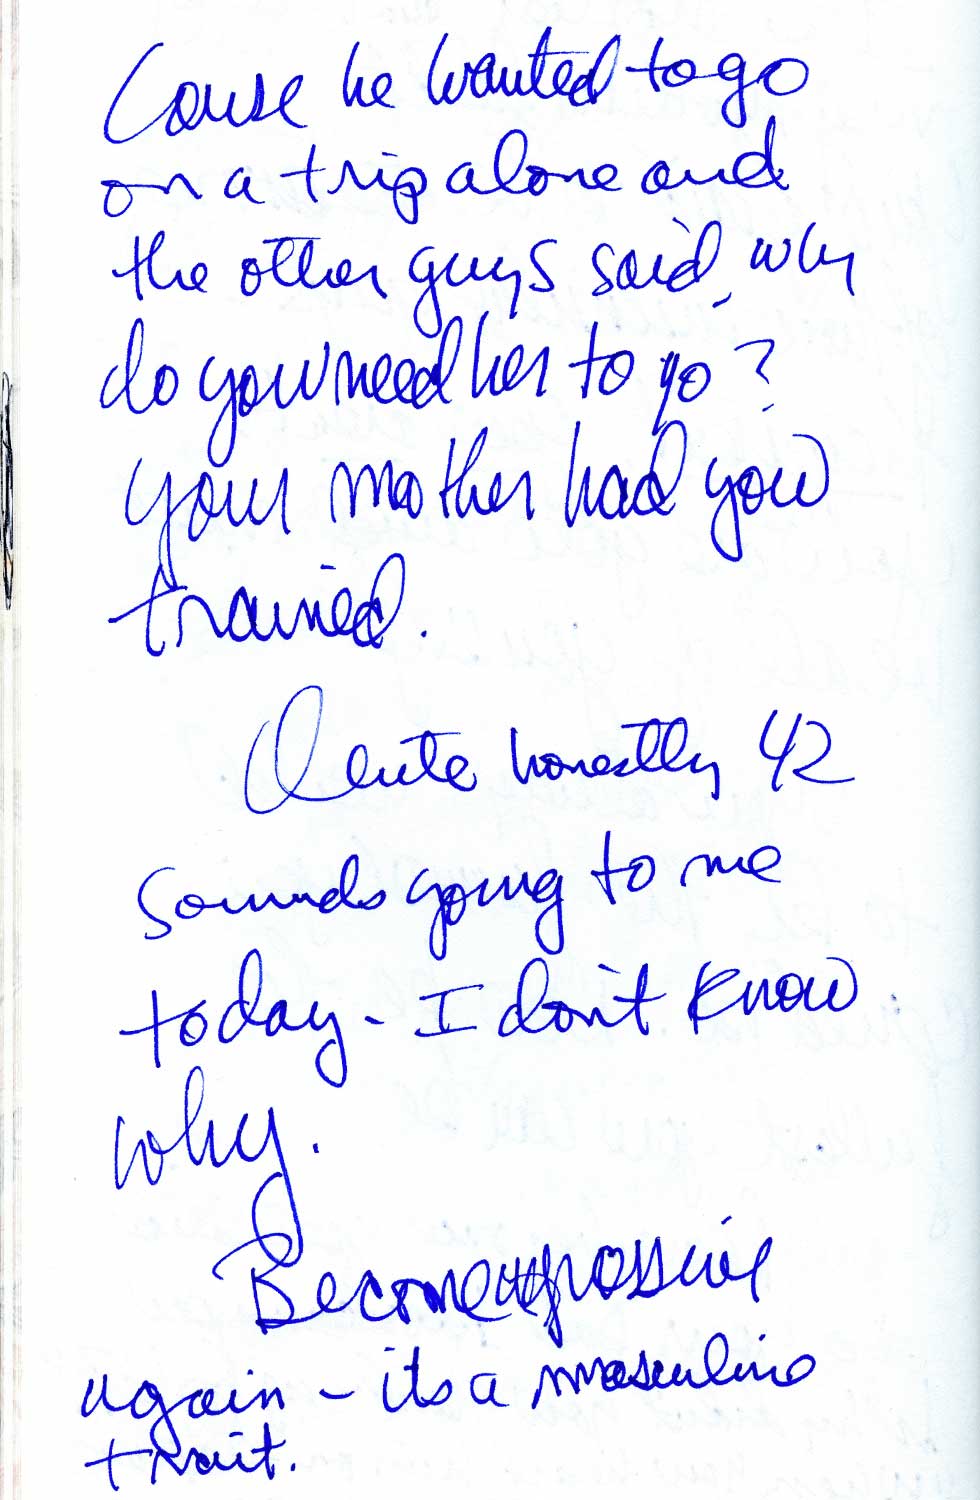 Cause he wanted to go
on a trip alone and
the other guys said, why
do you need her to go?
your mother had you
trained.
Quite honestly 42
Sounds young to me
today - I don't know
why.
Become
again - its a masculine
trait.